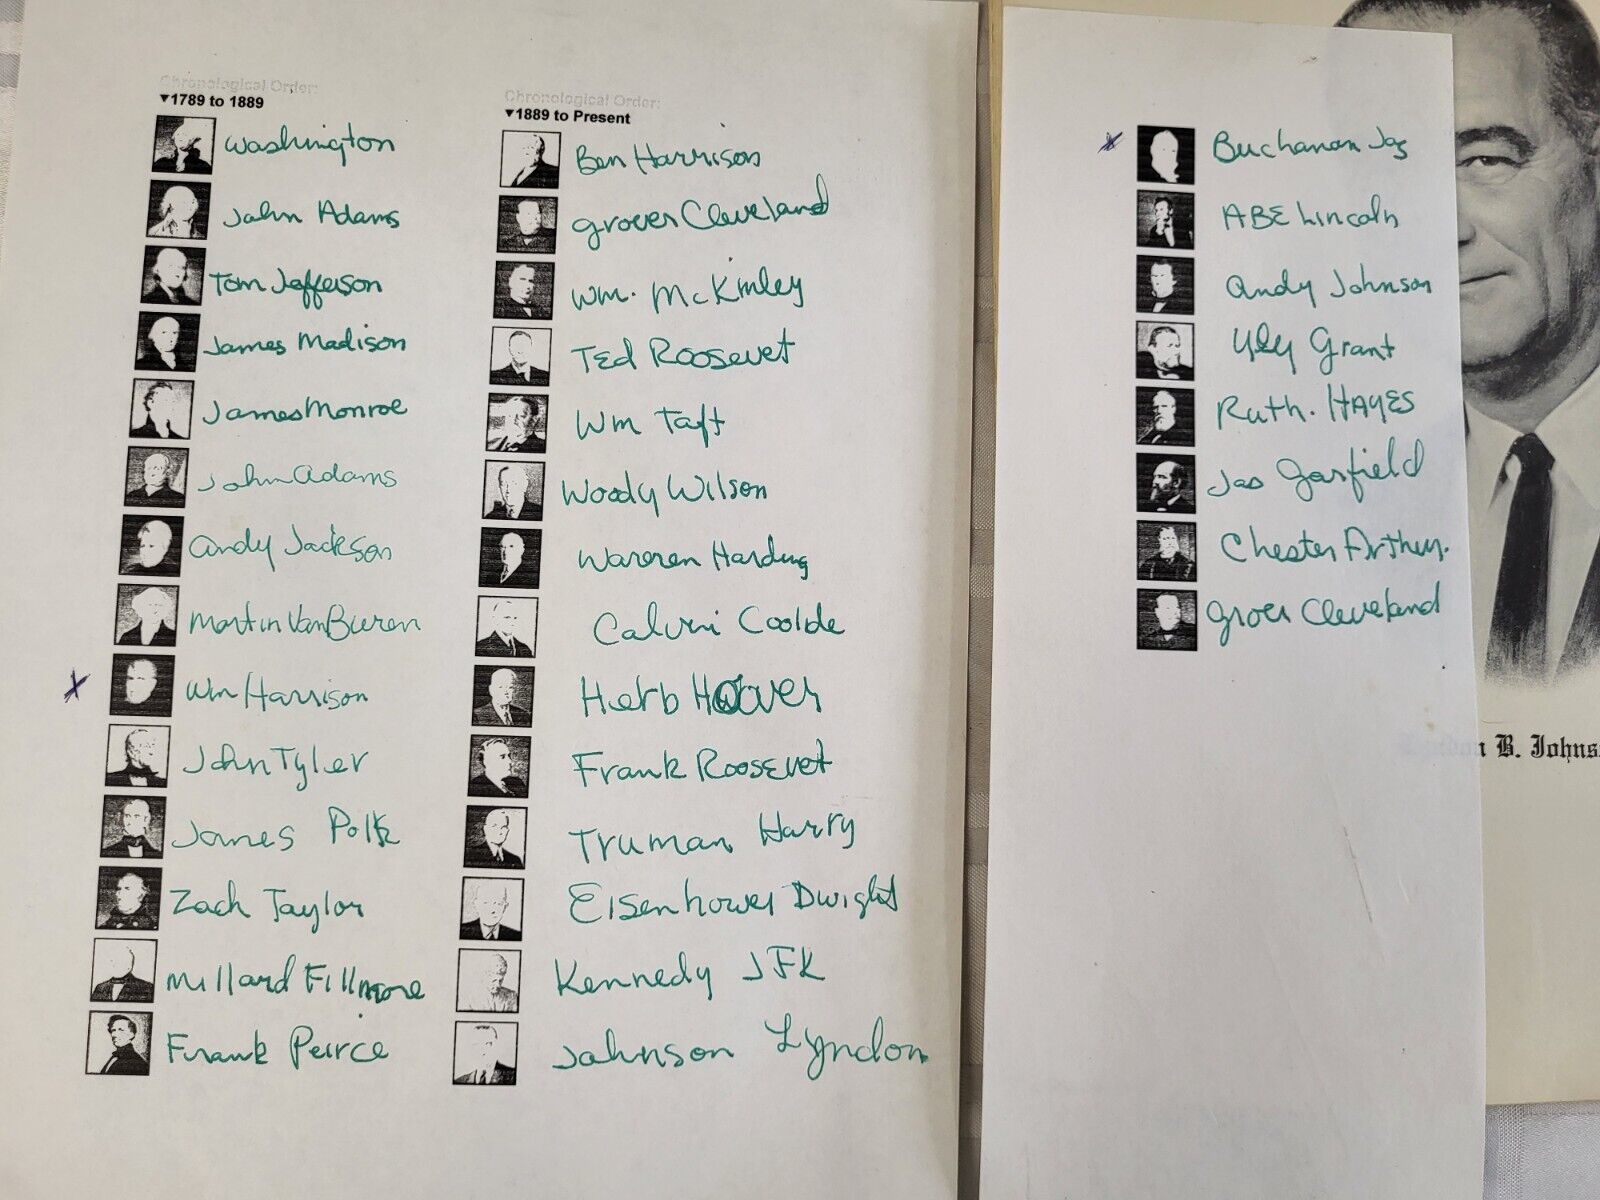 Chronological Order:
▼1789 to 1889
Washington
John Adams
Tom Jefferson
James Madison
James Monroe
John Adams
Andy Jackson
Martin Van Buren
x Wm Harrison
John Tyler
James Polk
Zach Taylor
Millard Fillmore
Frank Peirce
Chronological Order:
▼1889 to Present
Ben Harrison
Grover Cleveland
Wm. McKinley
TEd Roosevet
Wm Taft
Woody Wilson
Warren Harding
Calvin Coolde
Herb Hoover
Frank Roosevet
Truman Harry
Eisenhower Dwight
Kennedy JFK
Johnson Lyndon
x Buchanan Jas
ABE Lincoln
Andy Johnson
Grant
Ruth. HAYES
Jas Garfield
Chester Arthur.
Grover Cleveland
B. Johns